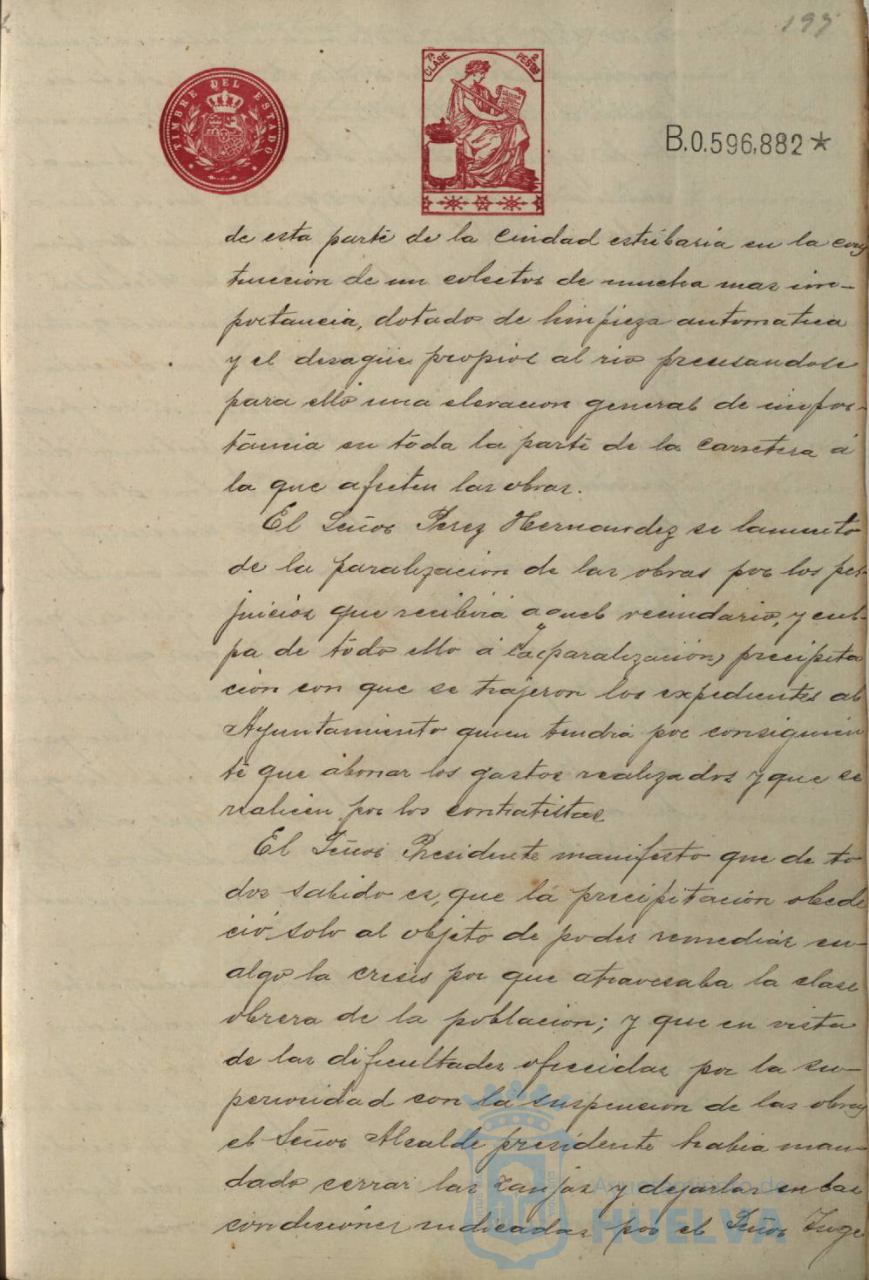 197
TIMBRE DEL ESTADO
7ª CLASE 2 PESETAS
B.0.596,882*
de esta parte de la Ciudad estribaria en la cons
trucción de un colector de mucha mas im-
portancia, dotado de limpieza automatica
y el desagüe propios al rio precisandose
para ello una elevacion general de impor-
tancia en toda la parte de la carretera á
la que afecten las obras.
El Señor Perez Hernandez se lamento
de la paralización de las obras por los per-
juicios que recibirá aquel vecindario, y cul-
pa de todo ello á la (paralización) precipita
ción con que se trajeron los expedientes al
Ayuntamiento quien tendrá por consiguien
te que abonar los gastos realizados y que se
realicen por los contratistas
El Señor Presidente manifesto que de to
dos sabido es, que la precipitación obede
ció solo al objeto de poder remediar en
algo la crisis por que atravesaba la clase
obrera de la población; y que en vista
de las dificultades ofrecidas por la su-
perioridad con la suspencion de las obras
el Señor Alcalde presidente habia man-
dado cerrar las zanjas y dejarlas en las
condiciones indicadas por el Señor Inge
Ayuntamiento de
HUELVA